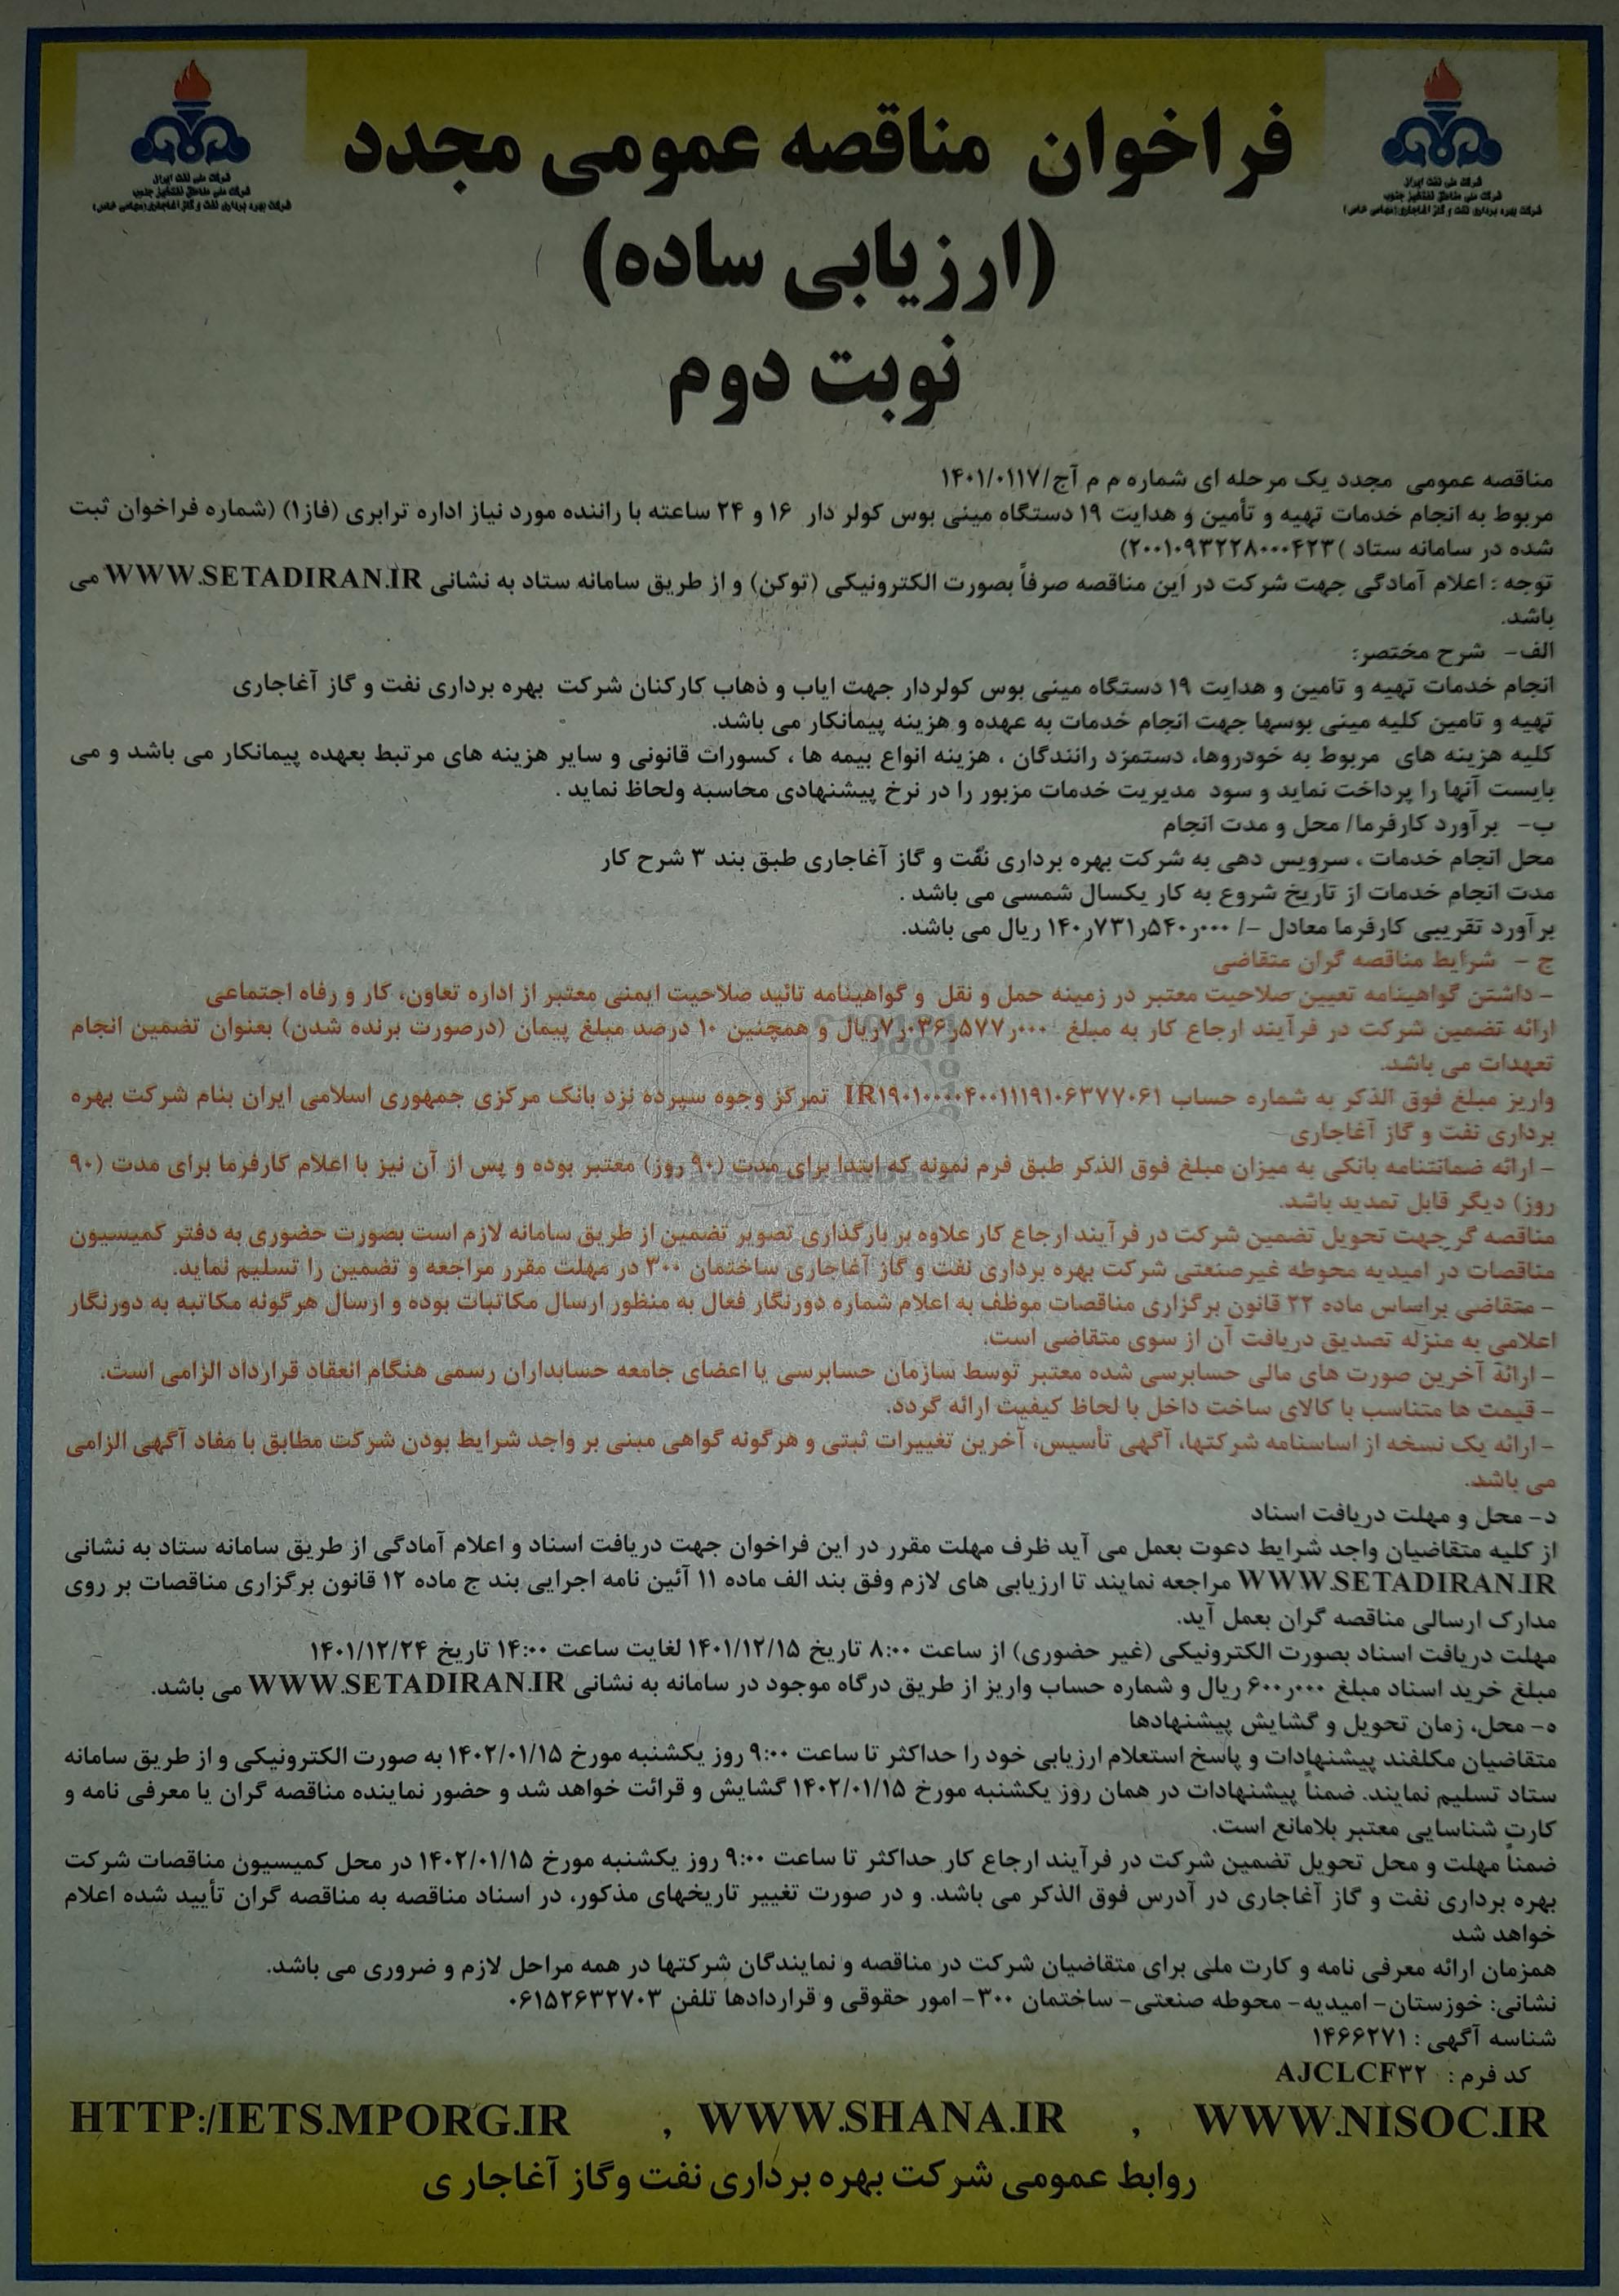 فراخوان مناقصه عمومی مجدد
شرکت ملی نفت ایران
شرکت ملی مناطق نفتخیز جنوب
شرکت بهره برداری نفت و گاز آغاجاری (سهامی خاص)
شرکت ملی نفت ایران
شرکت ملی مناطق نفتخیز جنوب
شرکت بهره برداری نفت و گاز آغاجاری (سهامی خاص)
(ارزیابی ساده)
نوبت دوم
مناقصه عمومی مجدد یک مرحله ای شماره م م آج/۱۴۰۱/۰۱۱۷
مربوط به انجام خدمات تهیه و تأمین و هدایت ۱۹ دستگاه مینی بوس کولر دار ۱۶ و ۲۴ ساعته با راننده مورد نیاز اداره ترابری (فاز۱) (شماره فراخوان ثبت
شده در سامانه ستاد )۲۰۰۱۰۹۳۲۲۸۰۰۰۴۲۳)
توجه : اعلام آمادگی جهت شرکت در این مناقصه صرفاً بصورت الکترونیکی (توکن) و از طریق سامانه ستاد به نشانی WWW.SETADIRAN.IR می
باشد.
الف- شرح مختصر:
انجام خدمات تهیه و تامین و هدایت ۱۹ دستگاه مینی بوس کولردار جهت ایاب و ذهاب کارکنان شرکت بهره برداری نفت و گاز آغاجاری
تهیه و تامین کلیه مینی بوسها جهت انجام خدمات به عهده و هزینه پیمانکار می باشد.
کلیه هزینه های مربوط به خودروها، دستمزد رانندگان ، هزینه انواع بیمه ها ، کسورات قانونی و سایر هزینه های مرتبط بعهده پیمانکار می باشد و می
بایست آنها را پرداخت نماید و سود مدیریت خدمات مزبور را در نرخ پیشنهادی محاسبه ولحاظ نماید .
ب- برآورد کارفرما/ محل و مدت انجام
محل انجام خدمات ، سرویس دهی به شرکت بهره برداری نفت و گاز آغاجاری طبق بند ۳ شرح کار
مدت انجام خدمات از تاریخ شروع به کار یکسال شمسی می باشد .
برآورد تقریبی کارفرما معادل -/ ۱۴۰ر۷۳۱ر۵۴۰ر۰۰۰ ریال می باشد.
ج - شرایط مناقصه گران متقاضی
- داشتن گواهینامه تعیین صلاحیت معتبر در زمینه حمل و نقل و گواهینامه تائید صلاحیت ایمنی معتبر از اداره تعاون، کار و رفاه اجتماعی
ارائه تضمین شرکت در فرآیند ارجاع کار به مبلغ ۷ر۰۳۶ر۵۷۷ر۰۰۰ریال و همچنین ۱۰ درصد مبلغ پیمان (درصورت برنده شدن) بعنوان تضمین انجام
تعهدات می باشد.
واریز مبلغ فوق الذکر به شماره حساب IR۱۹۰۱۰۰۰۰۴۰۰۱۱۱۹۱۰۶۳۷۷۰۶۱ تمرکز وجوه سپرده نزد بانک مرکزی جمهوری اسلامی ایران بنام شرکت بهره
برداری نفت و گاز آغاجاری
- ارائه ضمانتنامه بانکی به میزان مبلغ فوق الذکر طبق فرم نمونه که ابتدا برای مدت (۹۰ روز) معتبر بوده و پس از آن نیز با اعلام کارفرما برای مدت (۹۰
روز) دیگر قابل تمدید باشد.
مناقصه گر جهت تحویل تضمین شرکت در فرآیند ارجاع کار علاوه بر بارگذاری تصویر تضمین از طریق سامانه لازم است بصورت حضوری به دفتر کمیسیون
مناقصات در امیدیه محوطه غیرصنعتی شرکت بهره برداری نفت و گاز آغاجاری ساختمان ۳۰۰ در مهلت مقرر مراجعه و تضمین را تسلیم نماید.
- متقاضی براساس ماده ۲۲ قانون برگزاری مناقصات موظف به اعلام شماره دورنگار فعال به منظور ارسال مکاتبات بوده و ارسال هرگونه مکاتبه به دورنگار
اعلامی به منزله تصدیق دریافت آن از سوی متقاضی است.
- ارائه آخرین صورت های مالی حسابرسی شده معتبر توسط سازمان حسابرسی یا اعضای جامعه حسابداران رسمی هنگام انعقاد قرارداد الزامی است.
- قیمت ها متناسب با کالای ساخت داخل با لحاظ کیفیت ارائه گردد.
- ارائه یک نسخه از اساسنامه شرکتها، آگهی تأسیس، آخرین تغییرات ثبتی و هرگونه گواهی مبنی بر واجد شرایط بودن شرکت مطابق با مفاد آگهی الزامی
می باشد.
د- محل و مهلت دریافت اسناد
از کلیه متقاضیان واجد شرایط دعوت بعمل می آید ظرف مهلت مقرر در این فراخوان جهت دریافت اسناد و اعلام آمادگی از طریق سامانه ستاد به نشانی
WWW.SETADIRAN.IR مراجعه نمایند تا ارزیابی های لازم وفق بند الف ماده ۱۱ آئین نامه اجرایی بند ج ماده ۱۲ قانون برگزاری مناقصات بر روی
مدارک ارسالی مناقصه گران بعمل آید.
مهلت دریافت اسناد بصورت الکترونیکی (غیر حضوری) از ساعت ۸:۰۰ تاریخ ۱۴۰۱/۱۲/۱۵ لغایت ساعت ۱۴:۰۰ تاریخ ۱۴۰۱/۱۲/۲۴
مبلغ خرید اسناد مبلغ ۶۰۰ر۰۰۰ ریال و شماره حساب واریز از طریق درگاه موجود در سامانه به نشانی WWW.SETADIRAN.IR می باشد.
ه- محل، زمان تحویل و گشایش پیشنهادها
متقاضیان مکلفند پیشنهادات و پاسخ استعلام ارزیابی خود را حداکثر تا ساعت ۹:۰۰ روز یکشنبه مورخ ۱۴۰۲/۰۱/۱۵ به صورت الکترونیکی و از طریق سامانه
ستاد تسلیم نمایند. ضمناً پیشنهادات در همان روز یکشنبه مورخ ۱۴۰۲/۰۱/۱۵ گشایش و قرائت خواهد شد و حضور نماینده مناقصه گران با معرفی نامه و
کارت شناسایی معتبر بلامانع است.
ضمناً مهلت و محل تحویل تضمین شرکت در فرآیند ارجاع کار حداکثر تا ساعت ۹:۰۰ روز یکشنبه مورخ ۱۴۰۲/۰۱/۱۵ در محل کمیسیون مناقصات شرکت
بهره برداری نفت و گاز آغاجاری در آدرس فوق الذکر می باشد. و در صورت تغییر تاریخهای مذکور، در اسناد مناقصه به مناقصه گران تأیید شده اعلام
خواهد شد
همزمان ارائه معرفی نامه و کارت ملی برای متقاضیان شرکت در مناقصه و نمایندگان شرکتها در همه مراحل لازم و ضروری می باشد.
نشانی: خوزستان- امیدیه- محوطه صنعتی- ساختمان ۳۰۰- امور حقوقی و قراردادها تلفن ۰۶۱۵۲۶۳۲۷۰۳
شناسه آگهی : ۱۴۶۶۲۷۱
کد فرم : AJCLCF۳۲
WWW.NISOC.IR , WWW.SHANA.IR , HTTP:/IETS.MPORG.IR
روابط عمومی شرکت بهره برداری نفت وگاز آغاجاری